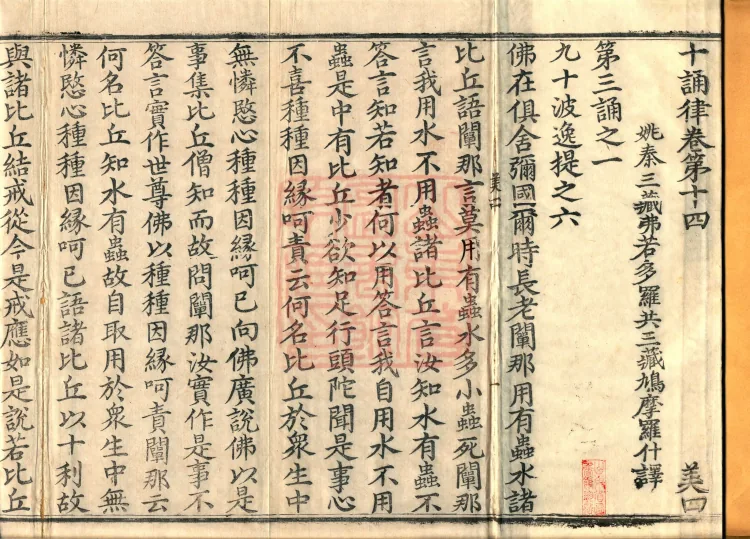 十誦律卷第十四
美四
姚秦三藏弗若多羅共三藏鳩摩羅什譯
第三誦之一
九十波逸提之六
佛在俱舍彌國爾時長老闡那用有蟲水諸
比丘語闡那言莫用有蟲水多小蟲死闡那
言我用水不用蟲諸比丘言汝知水有蟲不
答言知若知者何以用答言我自用水不用
蟲是中有比丘少欲知足行頭陀聞是事心
不喜種種因緣呵責云何名比丘於眾生中
無憐愍心種種因緣呵已向佛廣說佛以是
事集比丘僧知而故問闡那汝實作是事不
答言實作世尊佛以種種因緣呵責闡那云
何名比丘知水有蟲故自取用於眾生中無
憐愍心種種因緣呵已語諸比丘以十利故
與諸比丘結戒從今是戒應如是說若比丘